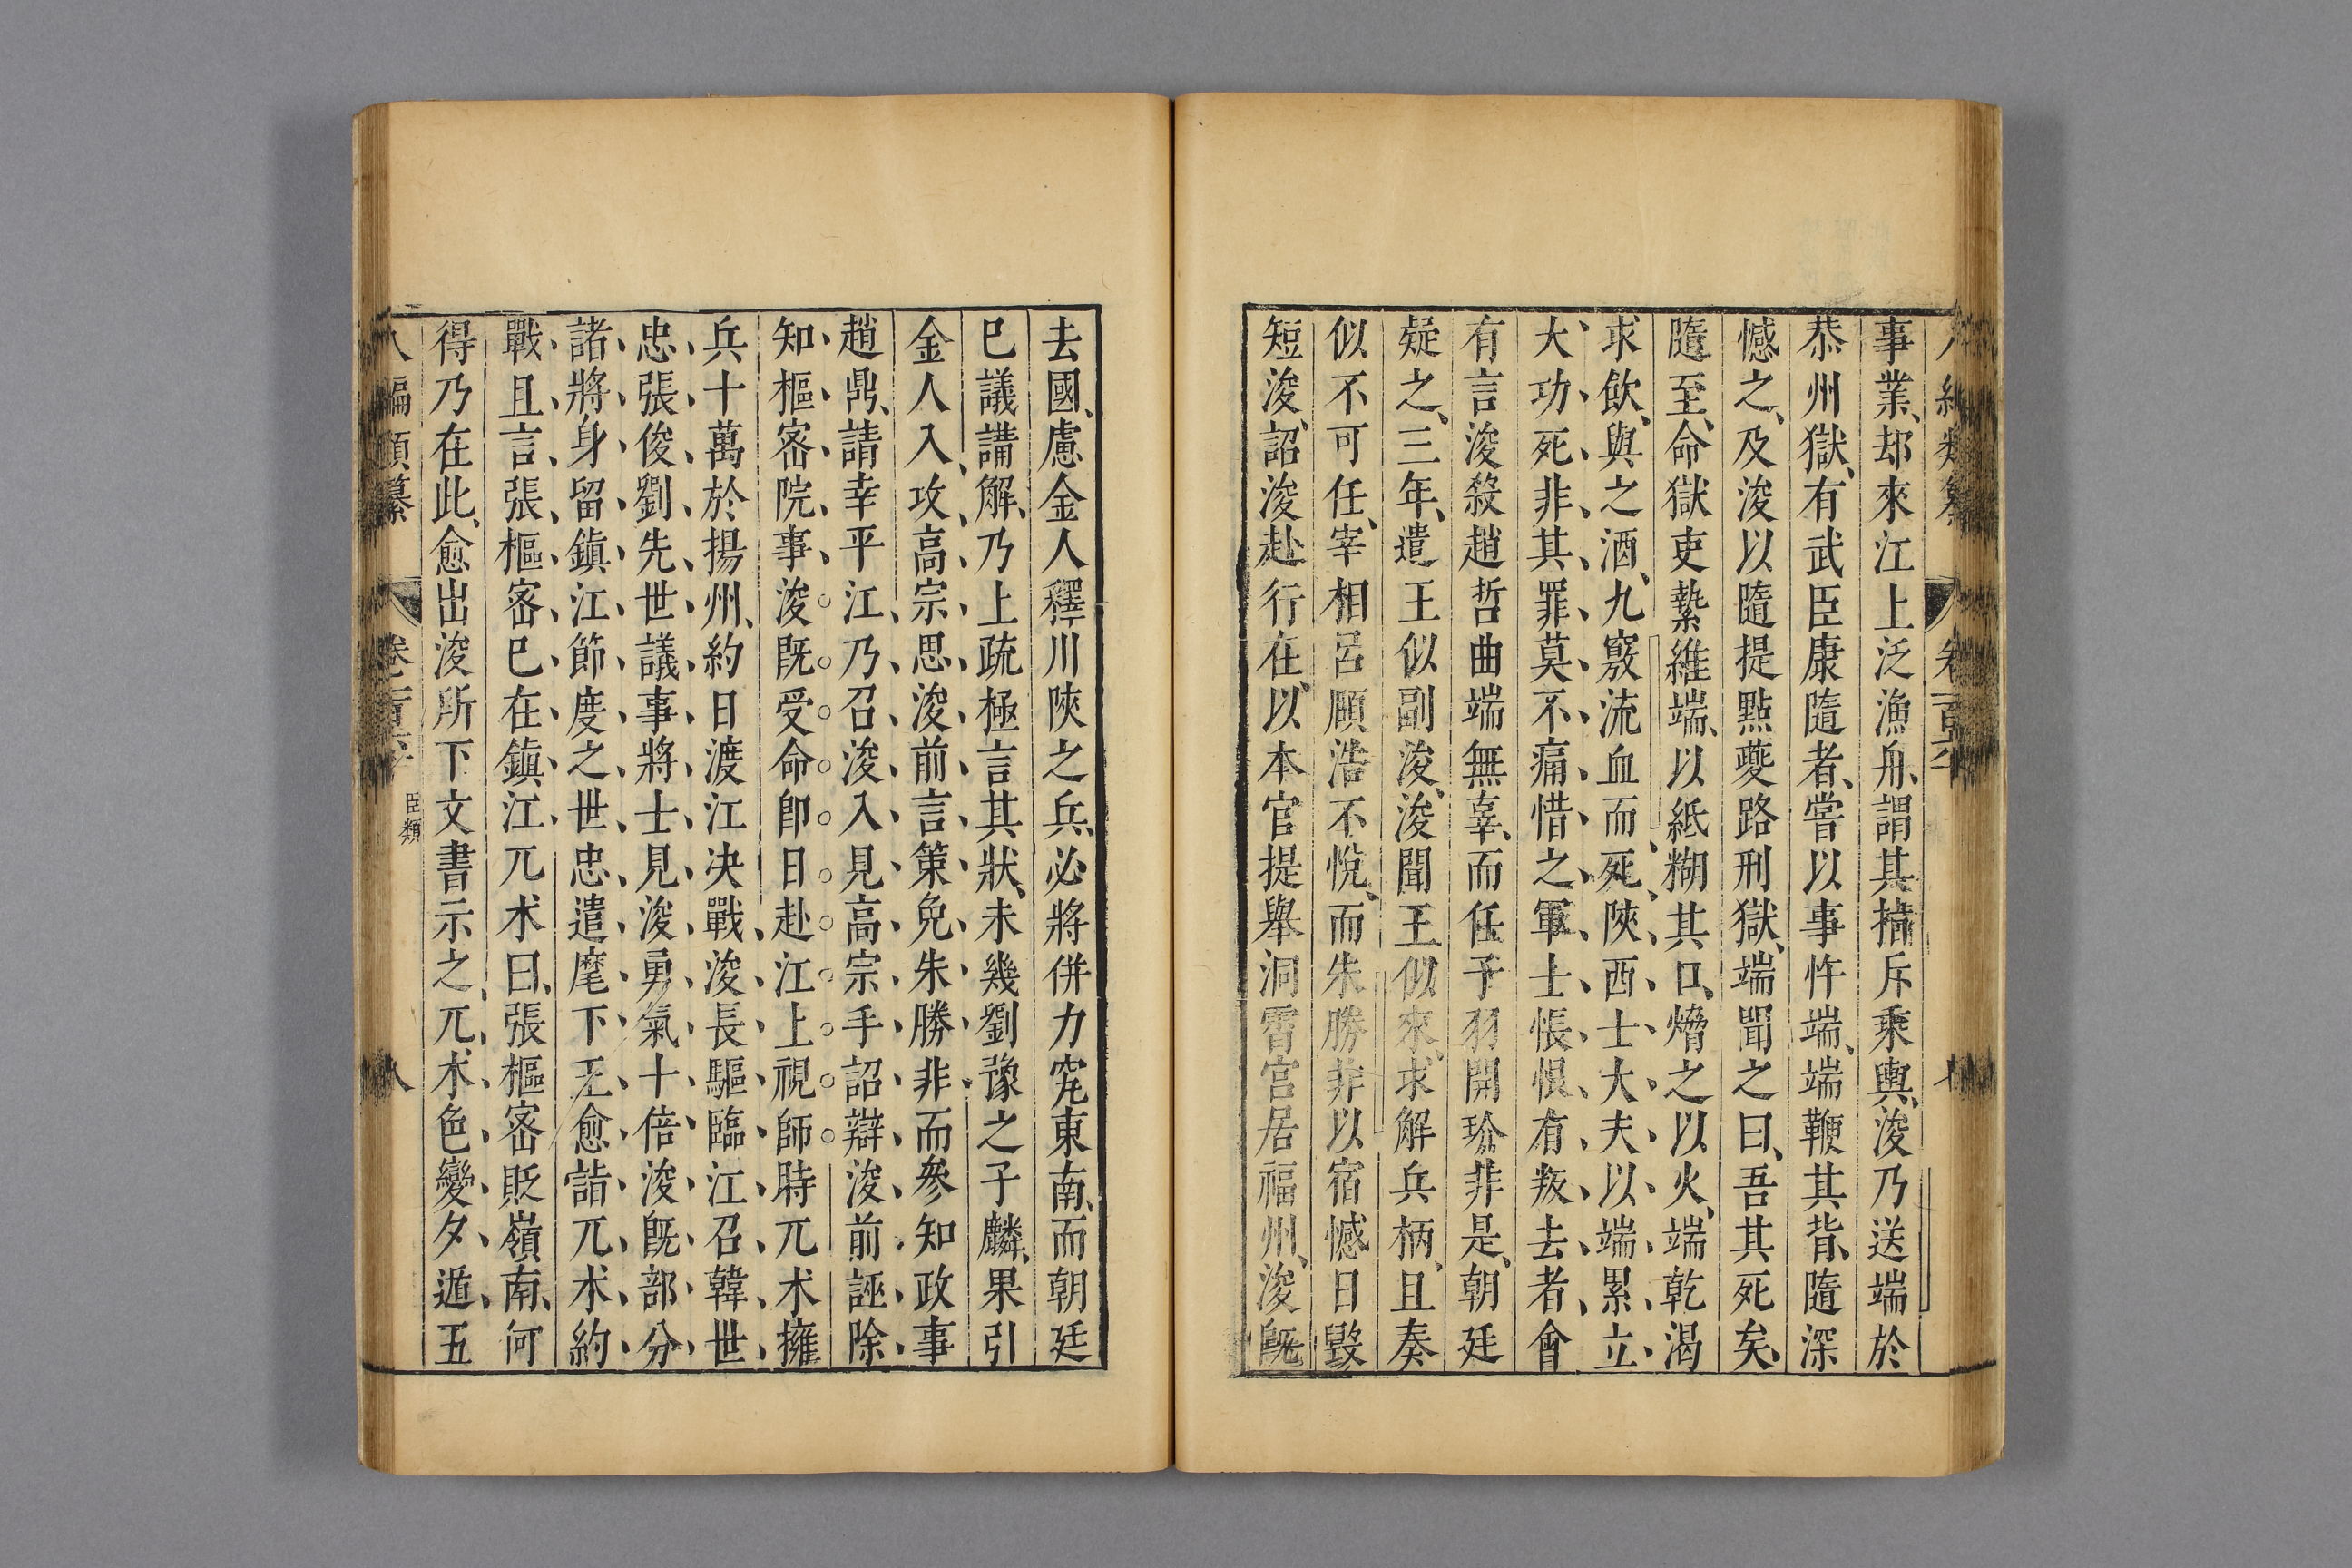 事業、却來江上泛漁舟、謂其指斥乘輿、浚乃送端於
恭州獄、有武臣康隨者、嘗以事忤端、端鞭其背、隨深
憾之、及浚以隨提點夔路刑獄、端聞之曰、吾其死矣、
隨至、命獄吏縶維端、以紙糊其口、熁之以火、端乾渴
求飲、與之酒、九竅流血而死、陝西士大夫以端累立
大功、死非其罪、莫不痛惜之、軍士悵恨、有叛去者、會
有言浚殺趙哲曲端無辜、而任子羽開玠非是、朝廷
疑之、三年、遣王似副浚、浚聞王似來、求解兵柄、且奏
似不可任、宰相呂頤浩不悅、而朱勝非以宿憾日毀
短浚、詔浚赴行在、以本官提舉洞霄宮居福州、浚既
去國、慮金人釋川陝之兵、必將併力窺東南、而朝廷
巳議講解、乃上疏極言其狀、未幾劉豫之子麟、果引
金人入攻、高宗思浚前言策免朱勝非而參知政事
趙鼎、請幸平江、乃召浚入見高宗手詔辯浚前誣除
知樞密院事浚既受命即日赴江上視師時兀朮擁
兵十萬於揚州、約日渡江決戰、浚長驅臨江召韓世
忠張俊劉先世議事將士見浚勇氣十倍浚既部分
諸將身留鎮江節度之世忠遣麾下王愈詣兀朮約
戰且言張樞密巳在鎮江、兀朮曰、張樞密貶嶺南、何
得乃在此、愈出浚所下文書示之、兀朮色變夕遁、五
八編類纂
卷一百六
臣類
八